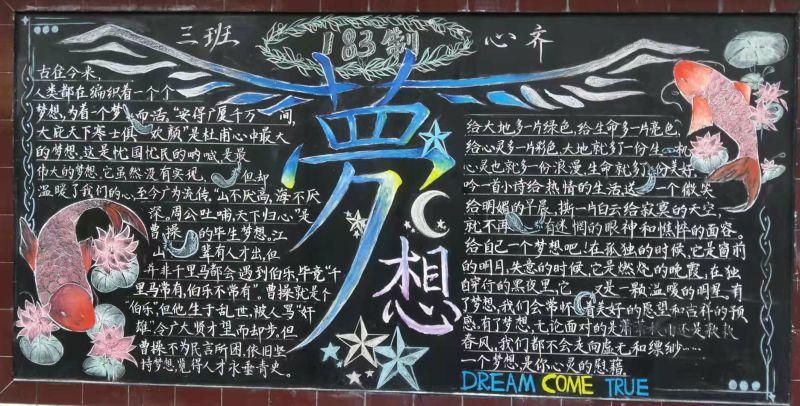 三班 183制 心齐
夢想
古往今来,
人类都在编织着一个个
梦想,为着一个梦而活,"安得广厦千万间,
大庇天下寒士俱欢颜"是杜甫心中最大
的梦想。这是忧国忧民的呐喊,是最
伟大的梦想,它虽然没有实现,但却
温暖了我们的心,至今广为流传,"山不厌高,海不厌
深,周公吐哺,天下归心"是
曹操的毕生梦想。江
山辈有人才出,但
并非千里马都会遇到伯乐,毕竟"千
里马常有,伯乐不常有"。曹操就是个
"伯乐",但他生于乱世,被人骂"奸
雄",令广大贤才望而却步。但
曹操不为民言所困,依旧坚
持梦想,觅得人才永垂青史。
给大地多一片绿色,给生命多一片亮色,
给心灵多一片彩色,大地就多了一份生机,
心灵也就多一份浪漫,生命就多了份美好,
吟一首小诗给热情的生活,送一个微笑
给明媚的早晨,撕一片白云给寂寞的天空,
就不再有迷惘的眼神和憔悴的面容。
给自己一个梦想吧!在孤独的时候,它是窗前
的明月,失意的时候,它是燃烧的晚霞,在独
自穿行的黑夜里,它又是一颗温暖的明星。有
了梦想,我们会常怀着美好的愿望和吉祥的预
感。有了梦想,无论面对的是还是款款
春风,我们都不会走向虚无和缥缈……
一个梦想,是你心灵的慰藉
DREAM COME TRUE